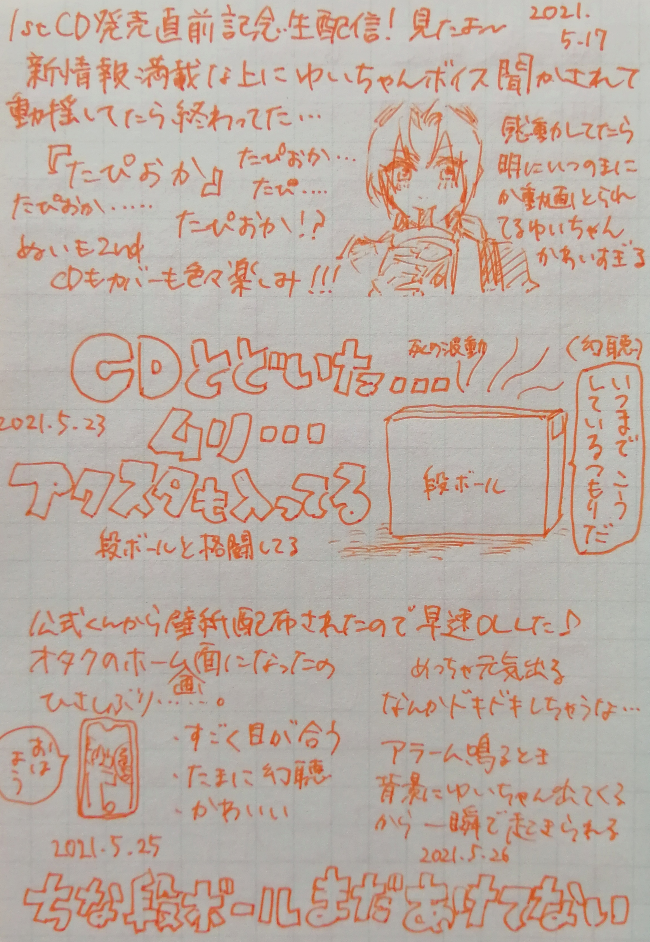 1st CD発売直前記念生配信！見たよ〜
2021.
5.17
新情報満載な上にゆいちゃんボイス聞かされて
動揺してたら終わってた…
『たぴおか』
たぴおか…
たぴ‥‥
たぴおか……
たぴおか!?
ぬいも2nd
CDもカバーも色々楽しみ!!!
感動かしてたら
明にいつのまに
か動画とられ
てるゆいちゃん
かわいすぎる
CDとどいた…
死の波動
(幻聴)
いつまでこう
しているつもりだ
2021.5.23
ムリ…
アクスタも入ってる
段ボール
段ボールと格闘してる
公式くんから壁紙配布されたので早速DLした♪
オタクのホーム画面になったの
ひさしぶり……。
おは
よう
・すごく目が合う
・たまに幻聴
・かわいい
2021.5.25
めっちゃ元気出る
なんかドキドキしちゃうな…
アラーム鳴るとき
背景にゆいちゃん出てくる
から一瞬で起きられる
2021.5.26
ちな段ボールまだあけてない